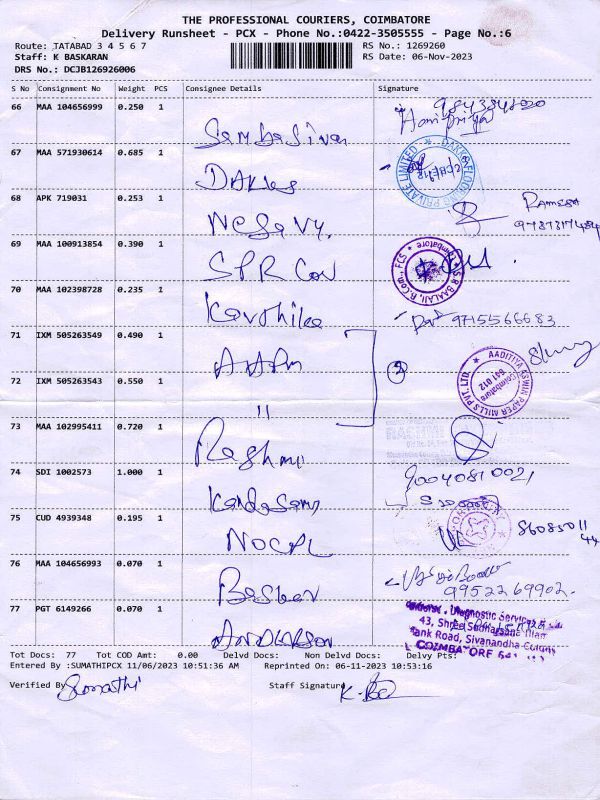 THE PROFESSIONAL COURIERS, COIMBATORE
Delivery Runsheet - PCX - Phone No.:0422-3505555 - Page No.:6
Route: TATABAD 3 4 5 6 7 RS No.: 1269260
Staff: K BASKARAN RS Date: 06-Nov-2023
DRS No.: DCJB126926006
S No Consignment No Weight PCS Consignee Details Signature
66 MAA 104656999 0.250 1 Sambasivan Haripriya
67 MAA 571930614 0.685 1 DAKKS
68 APK 719031 0.253 1 Ramesh
69 MAA 100913854 0.390 1 SPR Con
70 MAA 102398728 0.235 1 Karthika 9715566683
71 IXM 505263549 0.490 1
AADITIYA ASWIN PAPER MILLS PVT. LTD.
Coimbatore
641 012
72 IXM 505263543 0.550 1 "
73 MAA 102995411 0.720 1 Rashmi
74 SDI 1002573 1.000 1 Kandasamy 9004081002
75 CUD 4939348 0.195 1 NOCPL
76 MAA 104656993 0.070 1 Baskar 9952269902
77 PGT 6149266 0.070 1 ANDERSON
Diagnostic Services
Tank Road, Sivanandha Colony
COIMBATORE 641
Tot Docs: 77 Tot COD Amt: 0.00 Delvd Docs: Non Delvd Docs: Delvy Pts:
Entered By :SUMATHIPCX 11/06/2023 10:51:36 AM Reprinted On: 06-11-2023 10:53:16
Verified By Sumathi Staff Signature